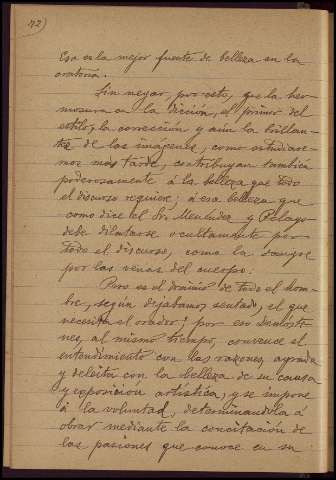 72)
Esa es la mejor fuente de belleza en la
oratoria.
Sin negar, por esto, que la her-
mosura en la dicción, el primor del
estilo, la corrección y aún la brillan-
tez de las imágenes, como estudiare-
mos mas tarde, contribuyan tambien
poderosamente á la belleza que todo
el discurso requiere; á esa belleza que
como dice el Sr. Menendez y Pelayo
debe dilatarse ocultamente por
todo el discurso, como la sangre
por las venas del cuerpo.
Pero es el dominio de todo el hom-
bre, según dejabamos sentado, el que
necesita el orador; por eso
al mismo tiempo, convence el
entendimiento con las razones, agrada
y deleita con la belleza de su causa
y exposición artística, y se impone
á la voluntad, determinandola á
obrar mediante la concitación de
las pasiones que conoce en su